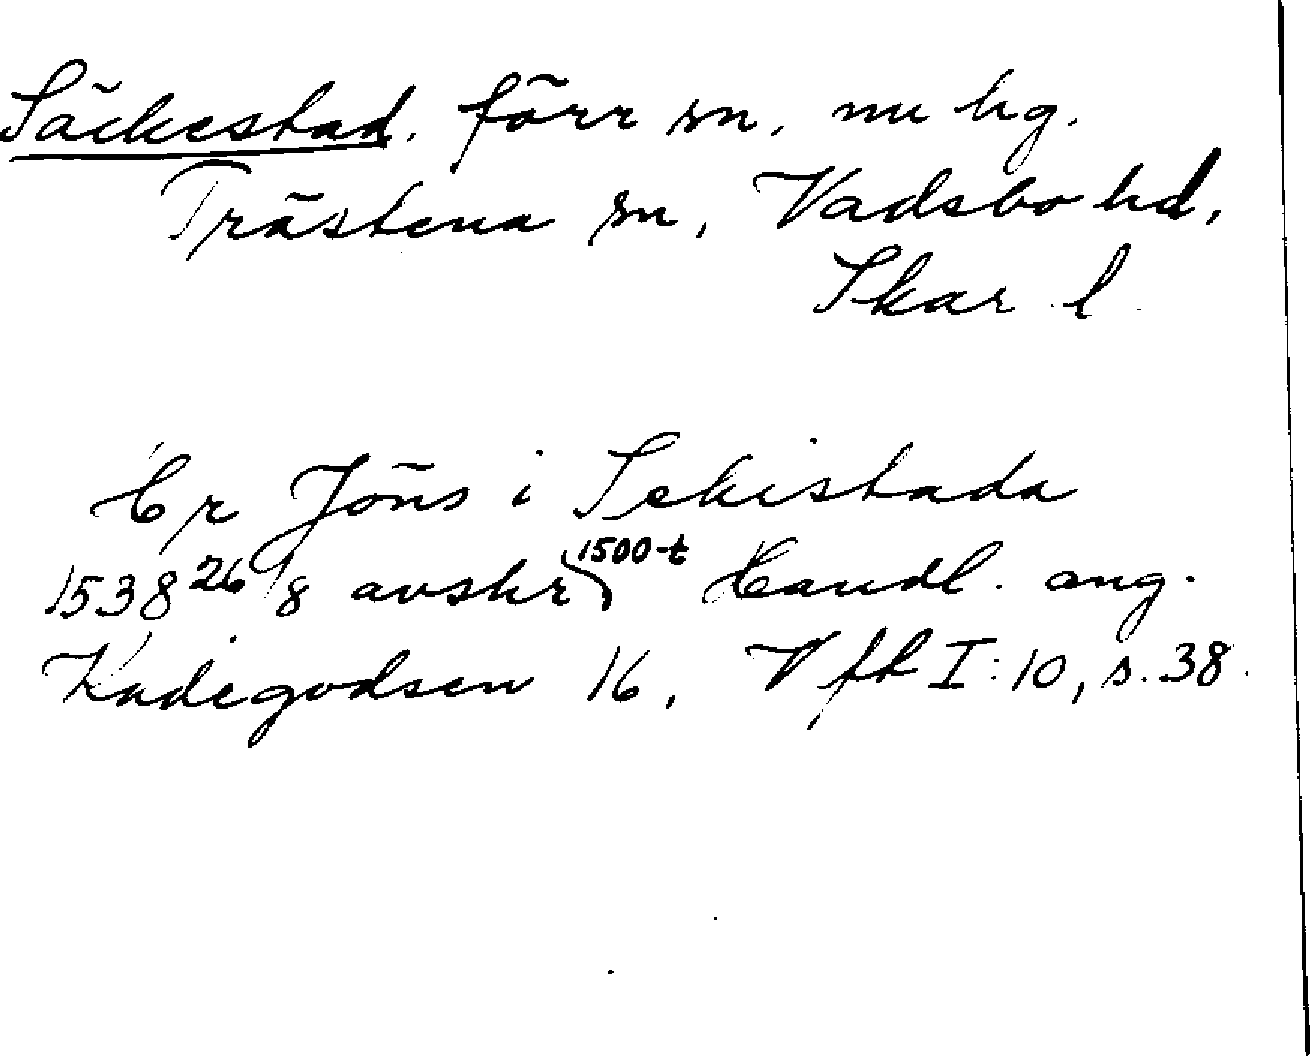 Säckestad. förr sn, nu hg.
Trästena sn, Vadsbo hd,
Skar. l.
Hr Jöns i Sekistada
1538 26/8 avskr 1500-t Handl. ang.
Kadegodsen 16, Vfk I:10, s. 38.